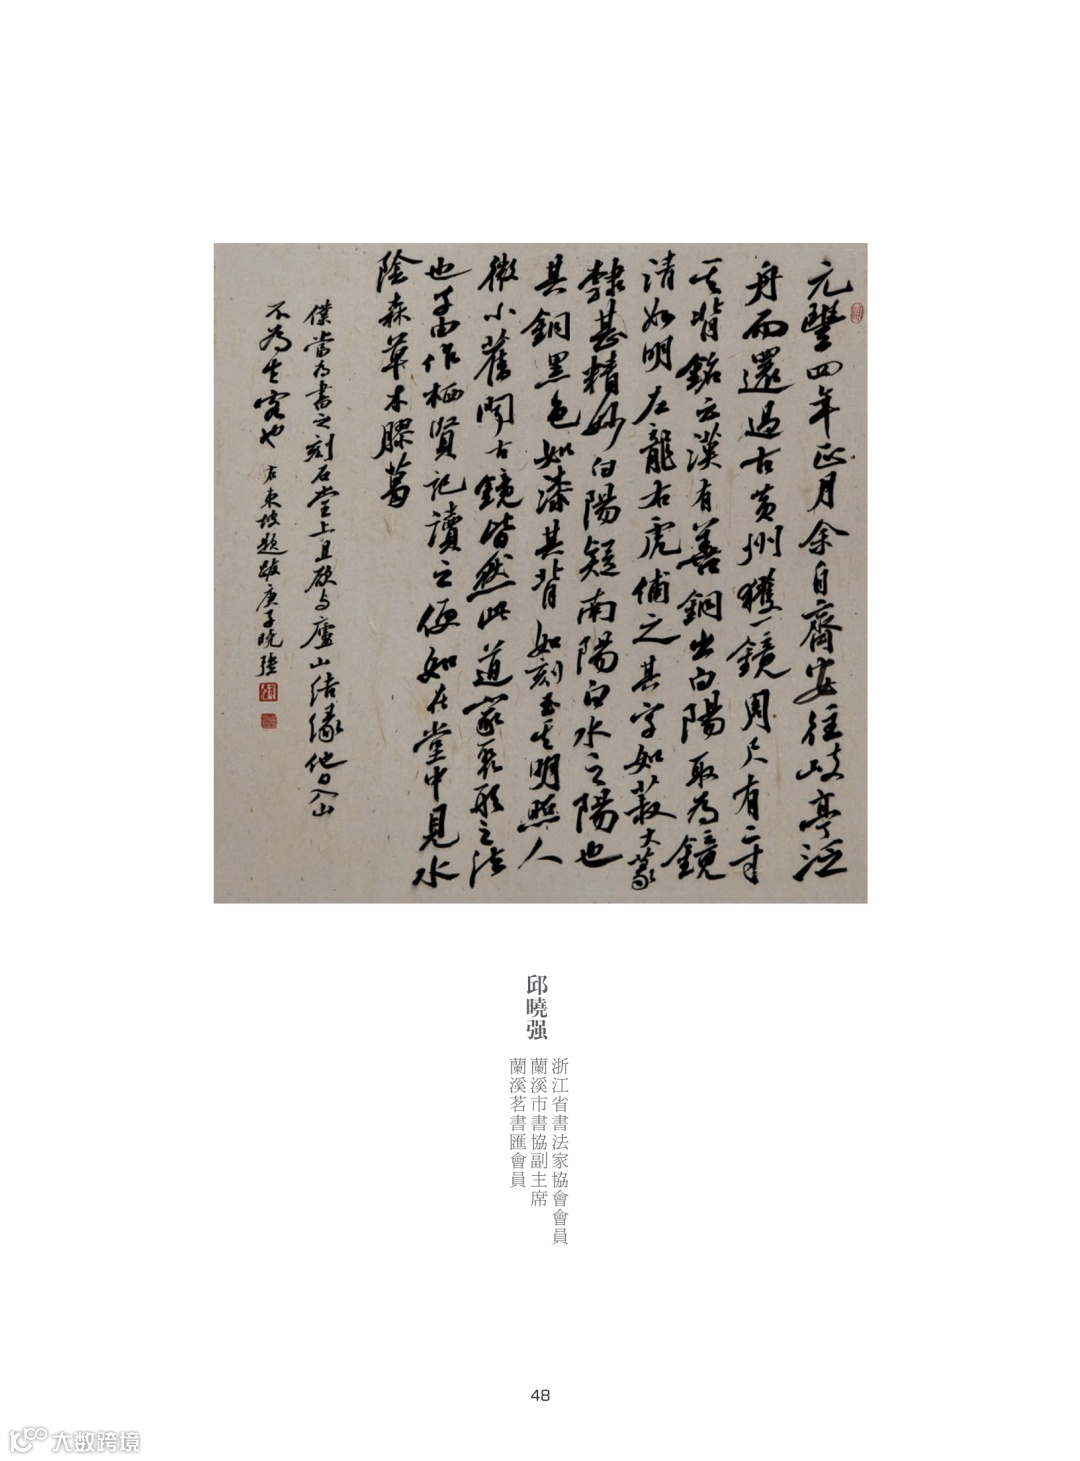 元豐四年正月余自齊安往岐亭泛
舟而還過古黄州獲一鏡周尺有二寸
其背銘云漢有善銅出白陽取為鏡
清如明左龍右虎俌之其字如菽大篆
隸甚精妙白陽疑南陽白水之陽也
其銅黑色如漆其背如刻玉其明照人
微小舊聞古鏡皆然此道家聚形之法
也子由作栖賢記讀之便如在堂中見水
陰森草木膠葛
僕當為書之刻石堂上且欲与廬山結緣他日入山
不為生客也 右東坡題跋庚子曉強
邱曉强
浙江省書法家協會會員
蘭溪市書協副主席
蘭溪茗書匯會員
48
大数跨境